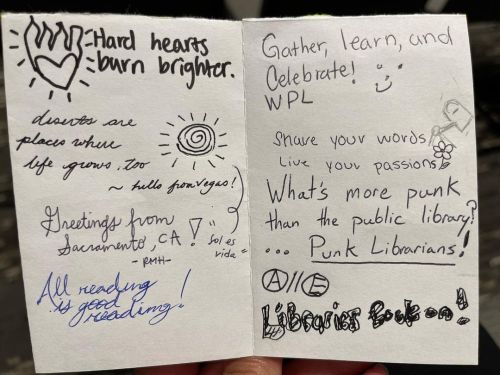 Hard hearts
burn brighter.
deserts are
places where
life grows, too
~ hello from Vegas!
Greetings from
Sacramento, CA!
- RMH -
Sol es
vida
All reading
is good
reading!
Gather, learn, and
Celebrate!
WPL
Share your words
Live your passions
What's more punk
than the public library?
... Punk Librarians!
A//E
Libraries Rock on!